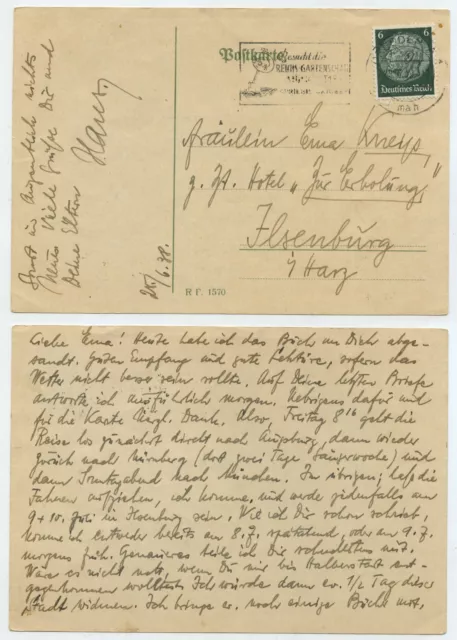 Postkarte
Besucht die
REICHSGARTENSCHAU
6 6
Deutsches Reich
Fräulein Erna Kneip,
z. Zt. Hotel „Zur Erholung"
Ilsenburg
i/Harz
Sonst im Augenblick nichts
Neues. Viele Grüße Du und
Deine Eltern
Hans.
25/6.38.
R F. 1570
Liebe Erna! Heute habe ich das Buch an Dich abge-
sandt. Guten Empfang und gute Lektüre, sofern das
Wetter nicht besser sein sollte. Auf Deine letzten Briefe
antworte ich ausführlich morgen. Uebrigens dafür und
für die Karte Dank. Also, Freitag 8 16 geht die
Reise los zunächst direkt nach Augsburg, dann wieder
zurück nach Nürnberg (dort zwei Tage Sängerwoche) und
dann Sonntagabend nach München. Im übrigen,
Fahnen aufziehen, ich komme, und werde jedenfalls am
9 + 10. Juli in Ilsenburg sein. Wie ich Dir schon schrieb,
komme ich entweder bereits am 8.7. spätabend, oder am 9.7.
morgens früh. Genaueres teile ich Dir schnellstens mit.
Wäre es nicht nett, wenn Du mir bis Halberstadt ent-
gegenkommen wolltest. Ich würde dann ev. 1/2 Tag dieser
Stadt widmen. Ich bringe ev. noch einige Bücher mit,